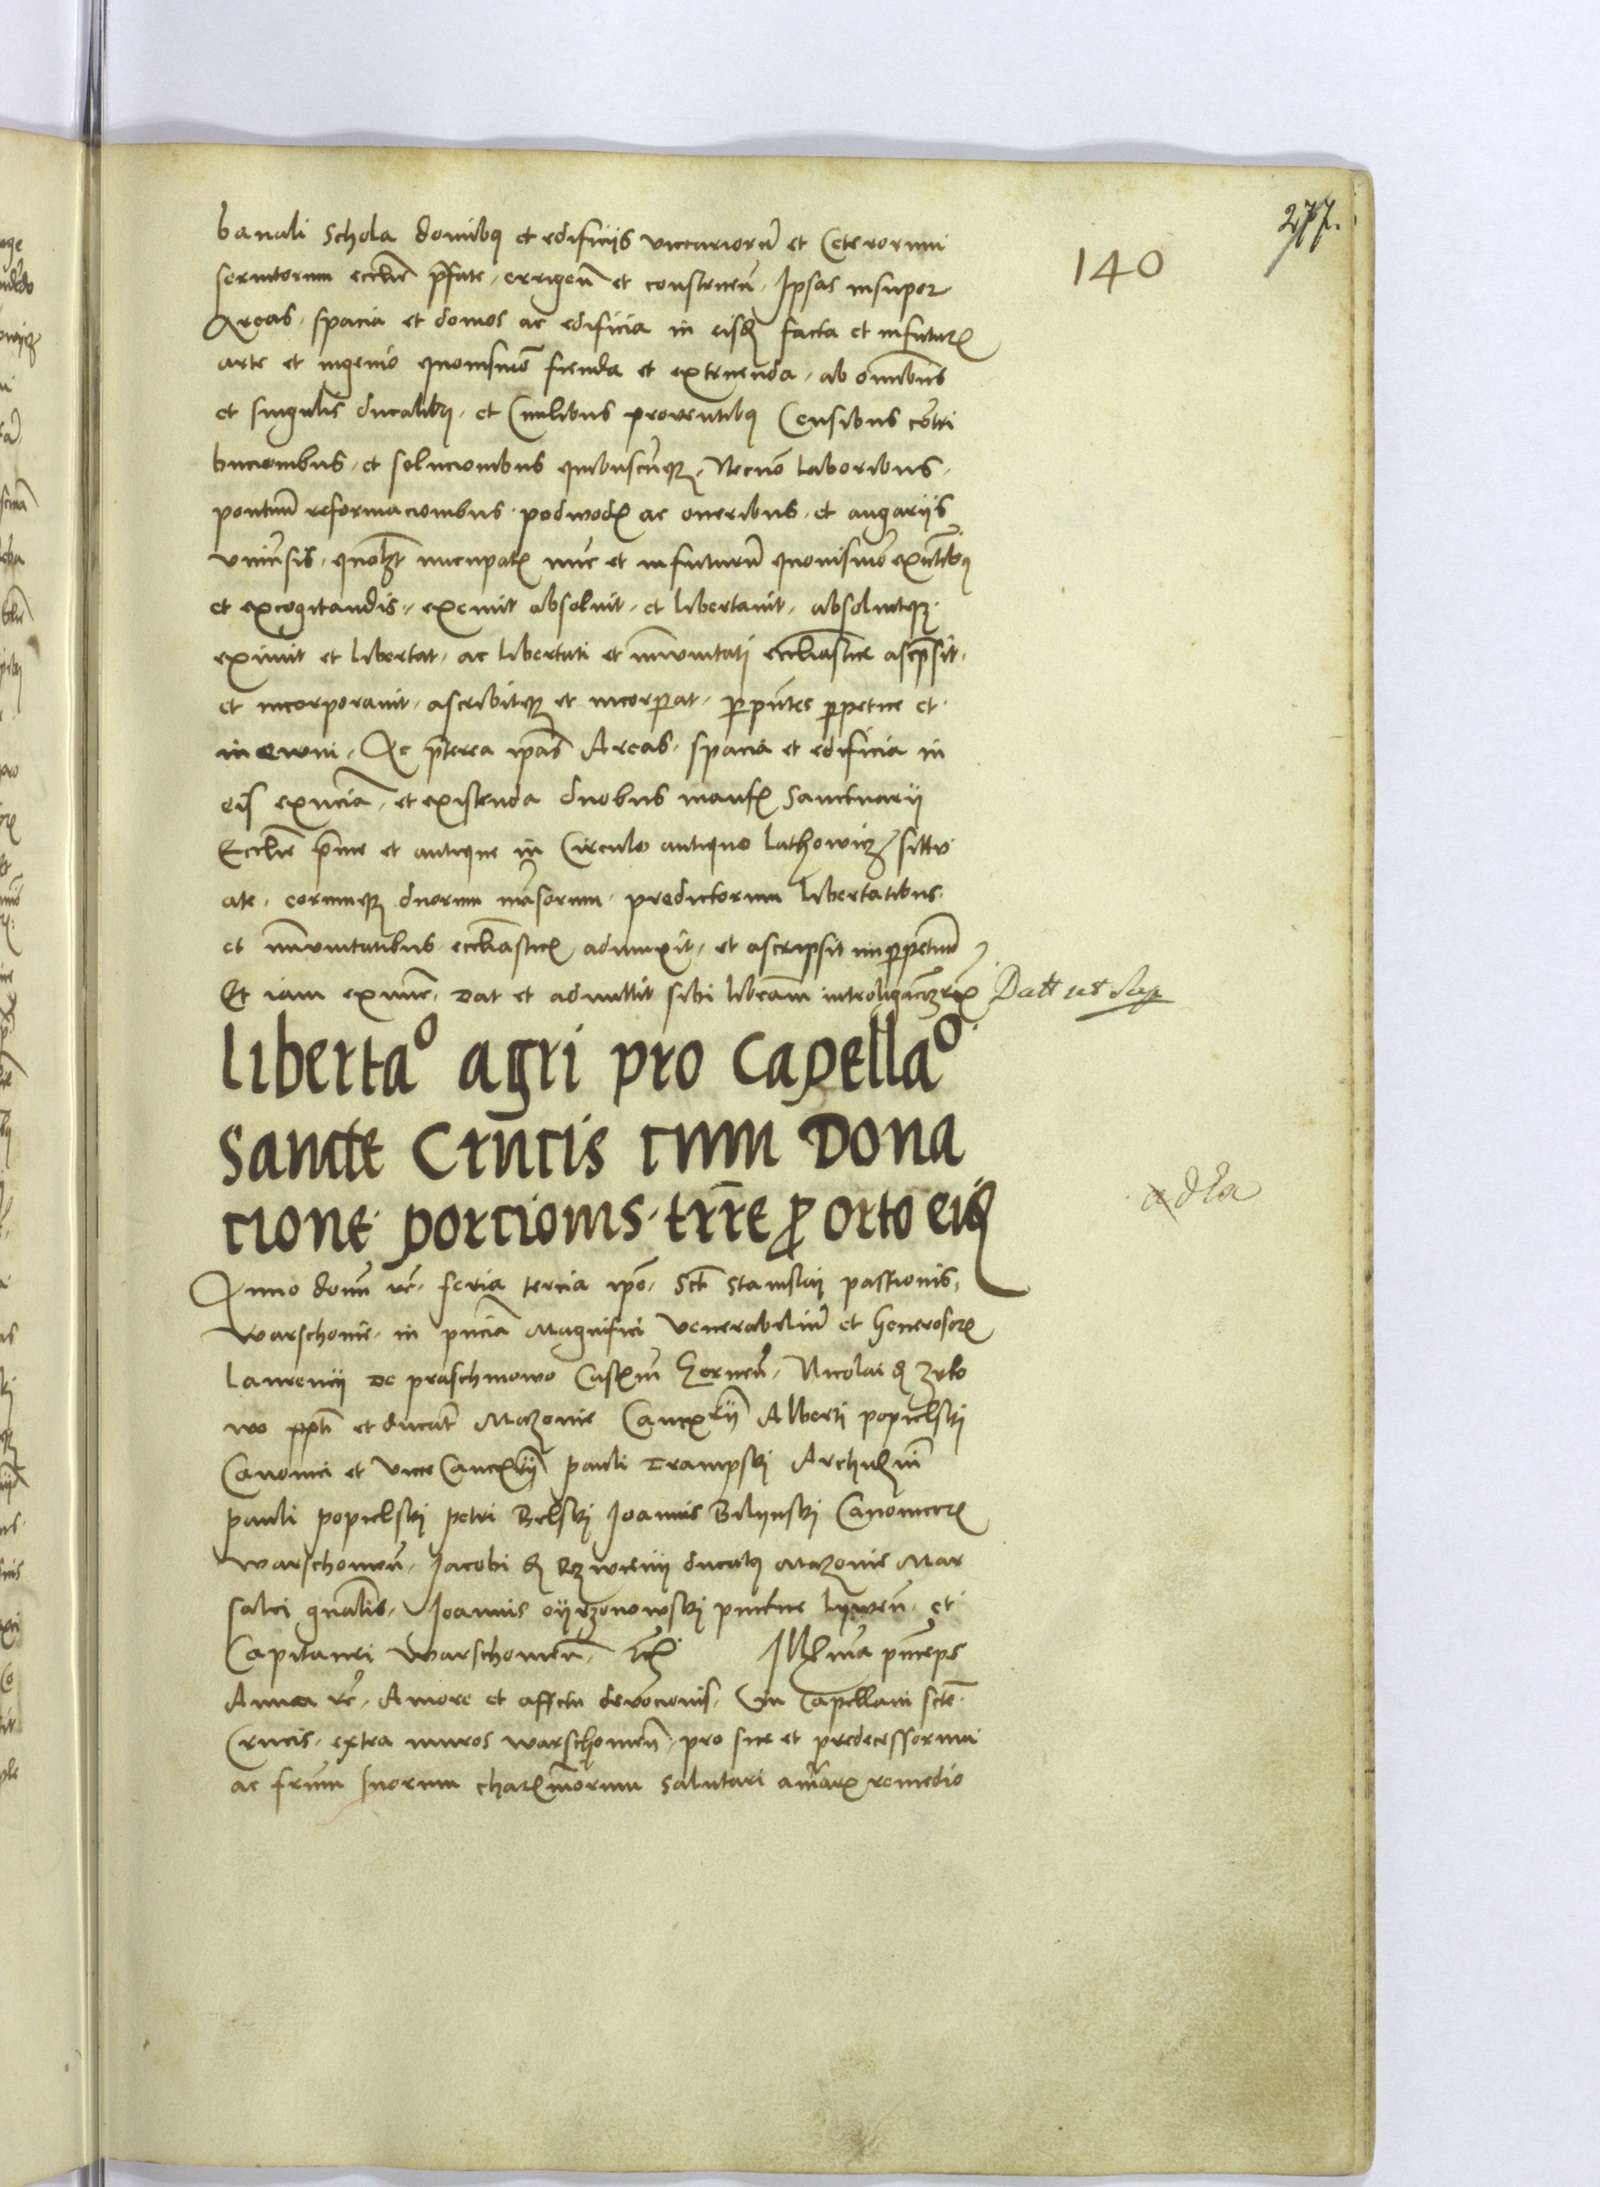 277.
140
banali Schola domibus et edificiis vicariorum et Ceterorum
servitorum ecclesie prefate, errigendum et construendum, Ipsas insuper
Areas, spacia et domos ac edificia in eisdem facta et in futurum
arte et ingenio quovismodo fienda et extruenda, ab omnibus
et singulis ducalibus, et Civilibus proventibus Censibus contri
bucionibus, et solucionibus quibuscumque, Necnon laboribus,
pontium reformacionibus podwodis ac oneribus, et angariis
universis, nuncupatis nunc et in futurum quovismodo
et excogitandis, exemit absolvit, et libertavit, absolvitque
eximit et libertat, ac libertati et immunitati ecclesiastice ascripsit,
et incorporavit, ascribitque et incorporat, per presentes perpetue et
in evum, Ac preterea ipsas Areas, spacia et edificia in
eis existencia, et existenda duobus mansis Sanctuarii
Ecclesie prime et antique in Circulo antiquo lathowicz situ
ate, eorumque duorum mansorum, predictorum libertatibus
et immunitatibus ecclesiasticis adiunxit, et ascripsit in perpetuum
Et iam eximit, dat et admittit sibi liberam Datt ut Sup
liberta° agri pro Capella°
Sancte Crucis cum Dona
cione porcionis terre pro orto eius
Anno domini etc. feria tercia ipso Sancti Stanislai passionis,
Warschovie, in presencia Magnifici Venerabilium et Generosorum
Laurencii de praschmowo Castellani Czernensis, Nicolai de Zuko
wo prepositi et ducatus Mazovie Cancellarii Alberti popielski
Canonici et Vice Cancellarii pauli Drampski
pauli popielski petri Belski Joannis Bilynski Canonicorum
Warschoviensium, Jacobi de ducatus Mazovie Mar
salci generalis, Joannis oyrzanowski pincerne Lywensis, et
Capitanei Warschoviensis, etc. Illustrissima princeps
Anna etc. Amore et affectu devocionis, in Capellam sancte
Crucis, extra muros warschovienses, pro sue et predecessorum
ac fratrum suorum charissimorum salutari animarum remedio